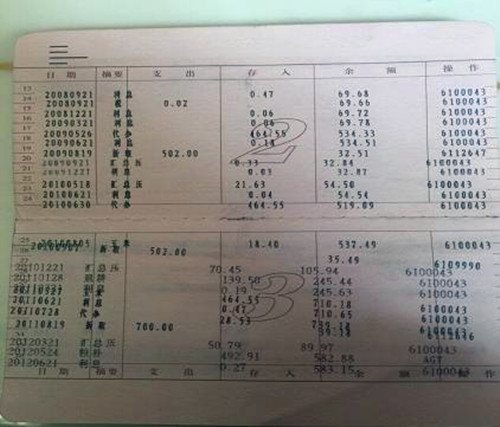 日期 摘要 支出 存入 余额 操作
13 20080921 利息 0.47 69.68 6100043
14 20080921 税 0.02 69.66 6100043
20081221 利息 0.06 69.72 6100043
20090321 利息 0.06 69.78 6100043
20090526 代办 464.55 534.33 6100043
20090621 利息 0.18 534.51 6100043
20090819 新取 502.00 32.51 6112647
20090921 汇总压 0.33 32.84 6100043
20091221 利息 0.03 32.87 6100043
20100518 汇总压 21.63 54.50 6100043
20100621 利息 0.04 54.54 6100043
24 20100630 代办 464.55 519.09 6100043
2
25 20100805 18.40 537.49 6100043
20100907 新取 502.00 35.49 6109990
20101221 汇总压 70.45 105.94 6100043
20110128 139.50 245.44 6100043
利息 0.19 245.63 6100043
464.55 710.18 6100043
20110621 利息 0.47 710.65 6100043
20110728 代办 28.53 739.18 6100043
20110819 新取 700.00 39.18 6112646
20120321 汇总压 50.79 89.97 6100043
20120524 492.91 582.88 AGT
20120621 利息 0.27 583.15 6100043
3
日期 摘要 支出 存入 余额 操作